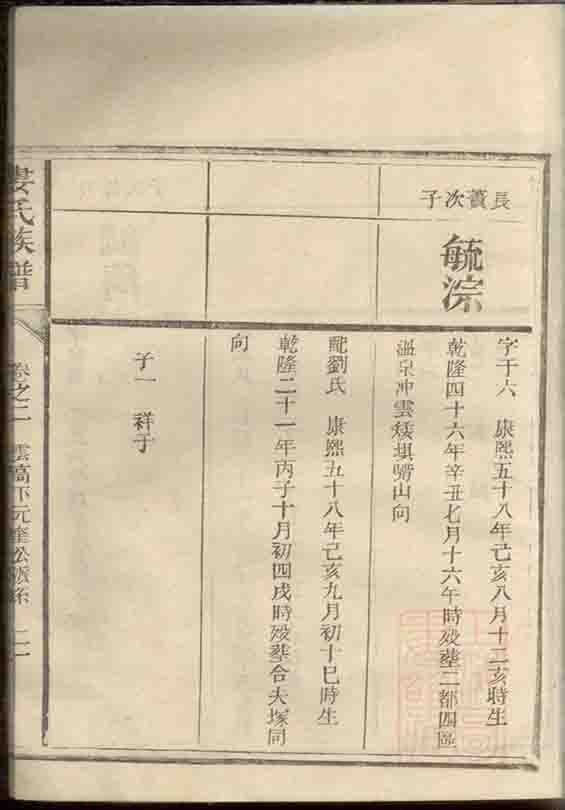 長賨次子
毓淙
字于六　康熙五十八年己亥八月十二亥時生
乾隆四十六年辛丑七月十六午時歿塟二都四區
溫泉冲雲矮塅背山向
配劉氏　康熙五十八年己亥九月初十巳時生
乾隆二十一年丙子十月初四戌時歿塟合夫塚同
向
子一　祥于
婁氏族譜
卷之二　雲高下元奎公派系